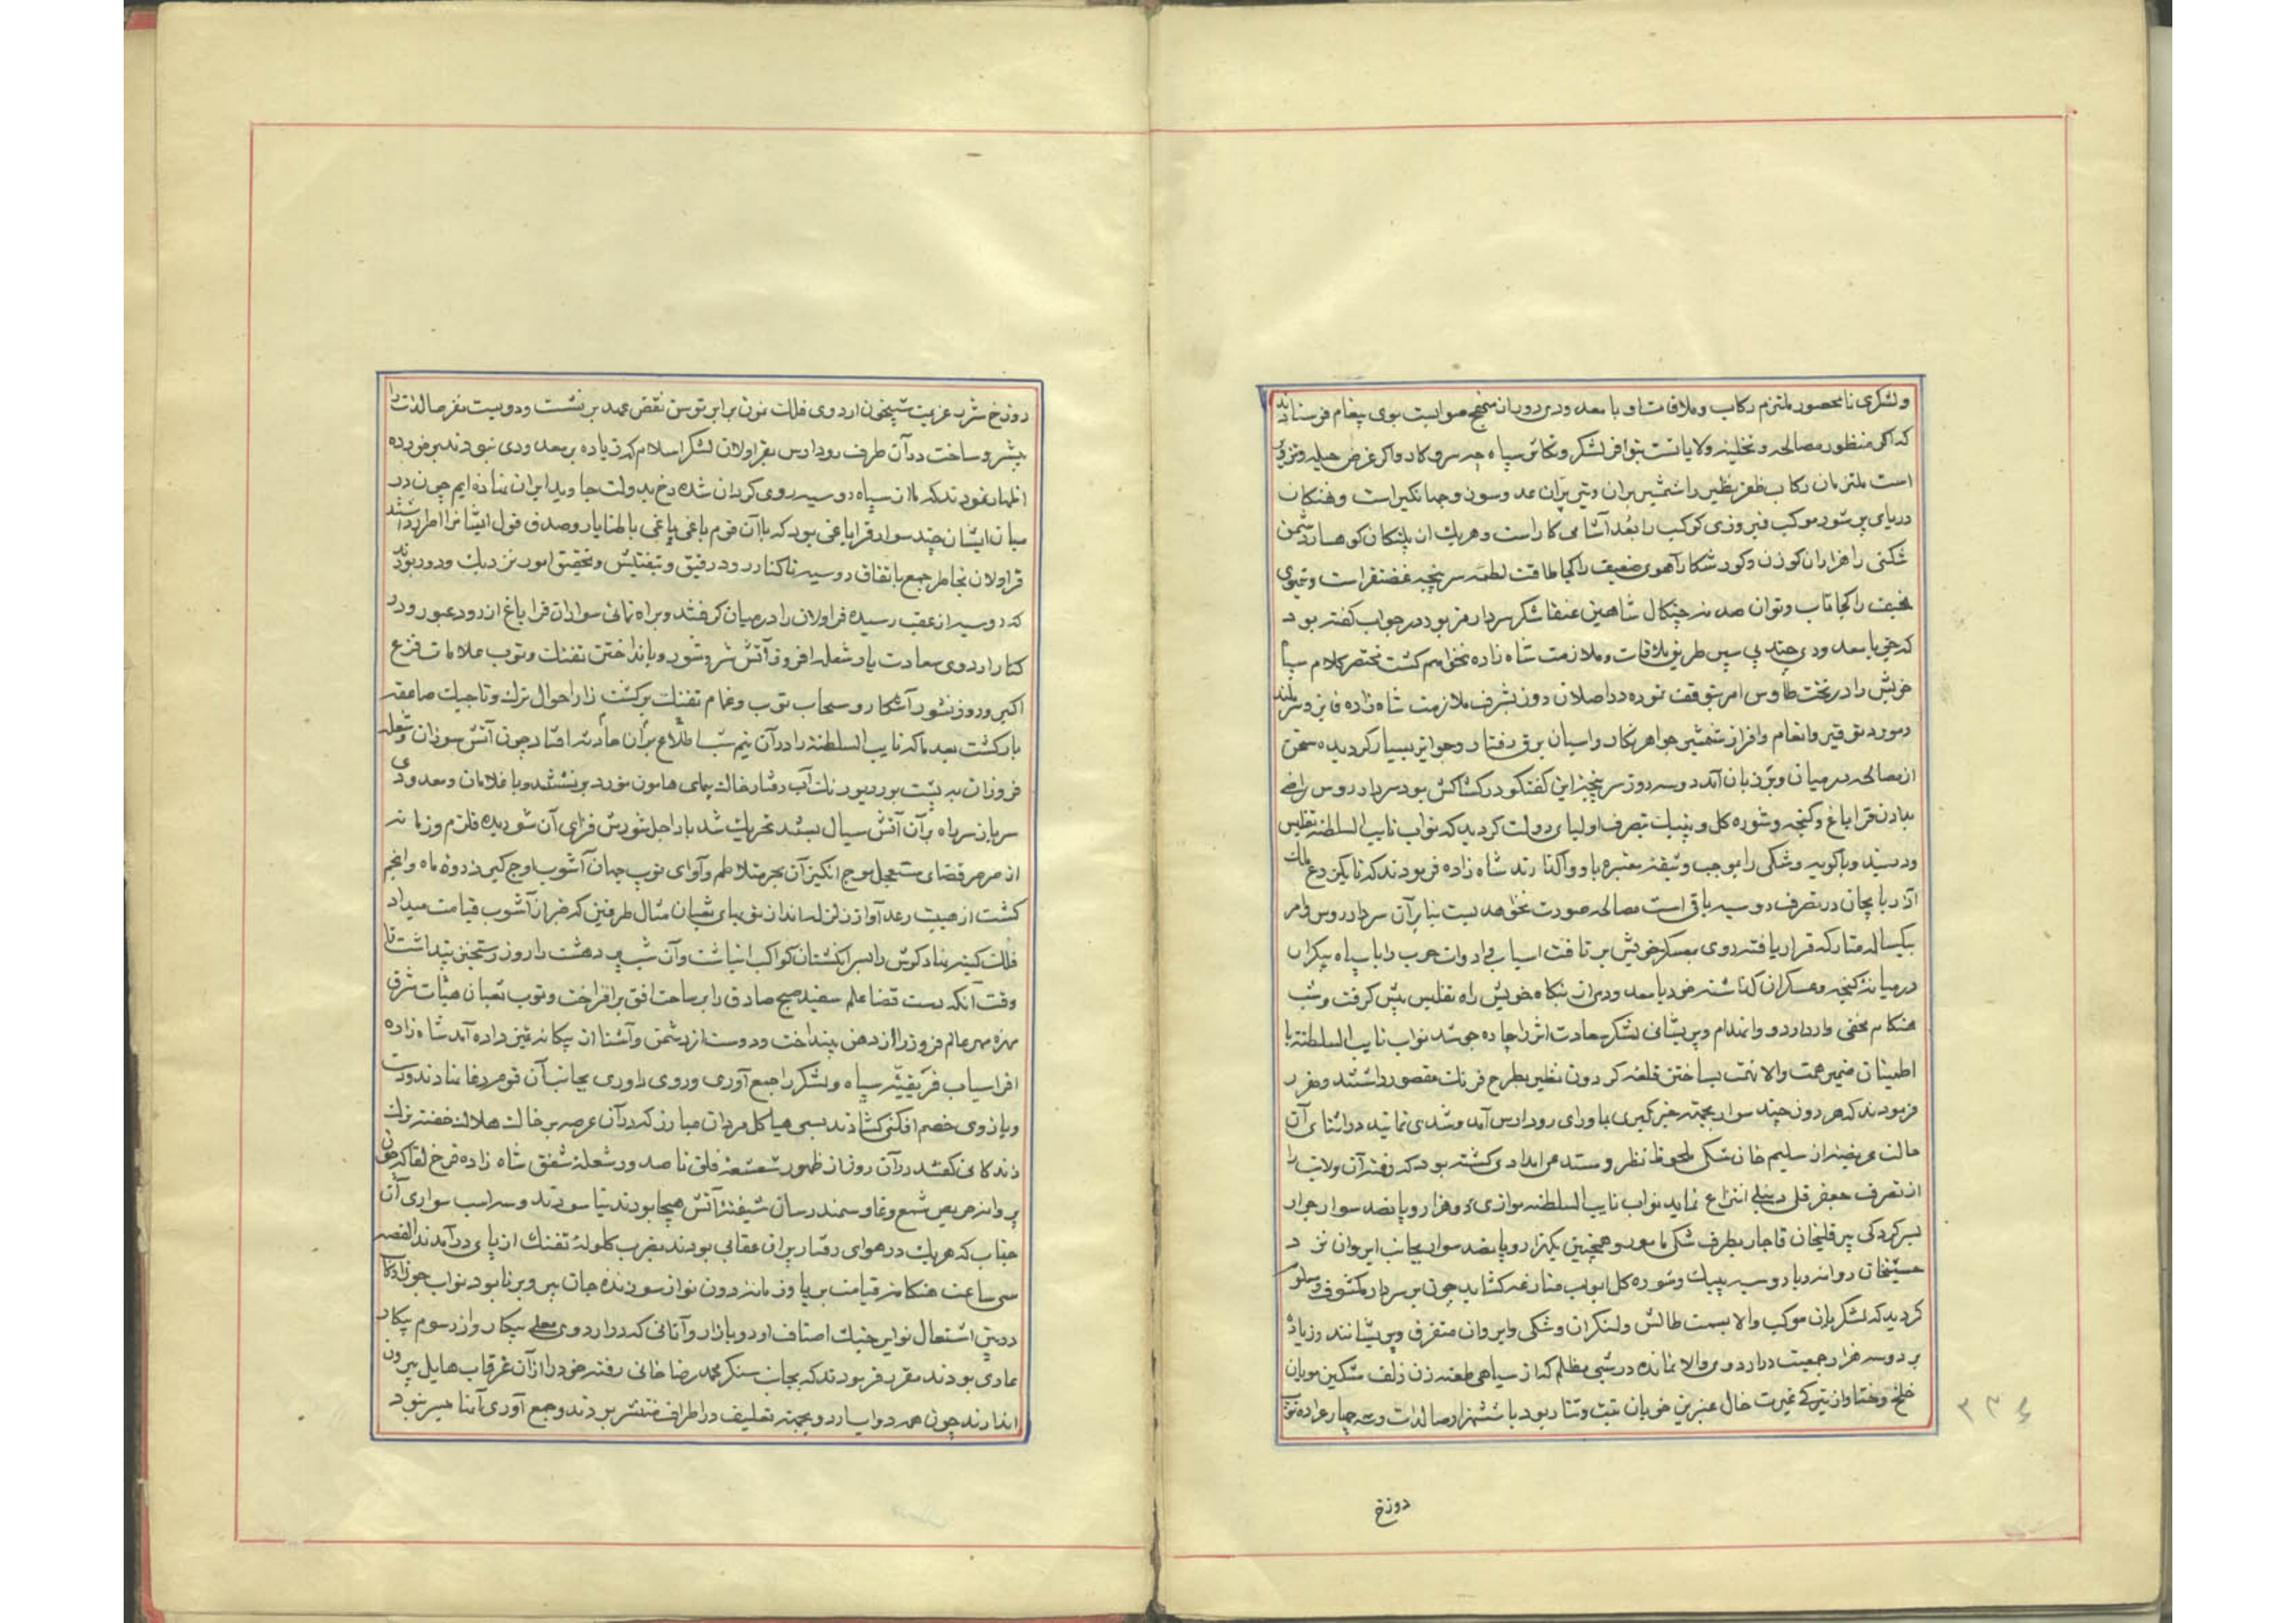 ولشکری نامحصور ملتزم رکاب وملاقات او با معدودی دور از منهج صوابست بوی پیغام فرستادند
که اگر منظور مصالحه و تخلیه ولایاتست بتوافر لشکر و تکاثر سپاه چه سر و کار و اگر غرض حیله وتزویر
است ملتزمان رکاب ظفر نظیر را شمشیر بران وتیر پران عدو سوز و جهانگیر است و نهنگان
دریای پر شور موکب فیروزی کوکب را آشامی کار است و هریک از پلنگان کوهسار دشمن
شکنی را هزاران گوزن وگور شکار آهوی ضعیف را کجا طاقت لطمه سرپنجه غضنفر است و
نحیف را کجا تاب و توان صدمه چنگال شاهین عنقا شکر سردار مزبور در جواب گفته بود
که من با معدودی چند پی سپر طریق ملاقات و ملازمت شاه زاده خواهم گشت مختصر کلام سپاه
خویش را در تخت طاوس امر بتوقف نموده در اصلان دوز بشرف ملازمت شاه زاده فایز و سربلند
و مورد توقیر وانعام وافراز شمشیر جواهر نگار و اسبان برق رفتار و جوایز بسیار گردیده سخن
از مصالحه در میان و بر زبان آمد دو سه روز سرپنجه این گفتگو در کشاکش بود سردار روس راضی
بدادن قراباغ و گنجه و شوره کل و پنبک بتصرف اولیای دولت گردید که نواب نایب السلطنه تفلیس
و دربند و باکویه و شکی را بموجب وثیقه معتبره باو واگذارند شاه زاده فرمودند که تا یکمزرع ملک
آذربایجان در تصرف روسیه باقی است مصالحه صورت نخواهد بست بنابرآن سردار روس وامر
بیکساله متارکه قرار یافته روی بمعسکر خویش بر تافت اسباب وادوات حرب را با سپاه بیکران
در میانه گنجه و عسکران گذاشته خود با معدودی از بنگاه خویش راه تفلیس پیش گرفت و شب
هنگام مخفی وارد اردو و انهدام و پریشانی لشکر سعادت اثر را چاره جو شد نواب نایب السلطنه با
اطمینان ضمیر همت والا نهمت بساختن قلعه گردون نظیر بطرح فرنک مقصور داشتند و مقرر
فرمودند که هر روز چند سوار بجهته خبرگیری بماورای رود ارس آمد و شدی نمایند در اثنای آن
حالت عریضه از سلیم خان شکی ملحوظ نظر و مستدعی امدادی گشته بود که رفته آن ولایت را
از تصرف جعفر قلی دنبلی انتزاع نماید نواب نایب السلطنه موازی دو هزار و پانصد سوار جرار
بسرکردگی پیر قلیخان قاجار بطرف شکی مامور و همچنین یکهزار و پانصد سوار بجانب ایروان نزد
حسینخان روانه و با روسیه پنبک وشوره کل ابواب منازعه گشاید چون بر سردار مکشوف و معلوم
گردید که لشکریان موکب والا بسمت طالش و لنکران و شکی و ایروان متفرق و پریشانند و زیاده
بر دو سه هزار جمعیت در اردوی والا نمانده در شبی مظلم که از سیاهی طعنه زن زلف مشکین مویان
خلخ و ختا و از تیرگی غیرت خال عنبرین خوبان تبت و تتار بود با ششهزار صالدات و سه چهار عراده توپ
۳۳۶
دوزخ
دوزخ شرر عزیمت شبیخون اردوی فلک نمون برابر توسن نقض عهد برنشست و دویست نفر صالدات را
پیشرو ساخت در آن طرف رود ارس بقراولان لشکر اسلام که زیاده بر معدودی نبودند برخورده
اظهار نمودند که ما از سپاه روسیه روی گردان شده رخ بدولت جاوید ایران نهاده ایم چون در
میان ایشان چند سوار قراباغی بود که با آن قوم یاغی باغی باطنا یار و صدق قول ایشانرا اظهار داشتند
قراولان بخاطر جمع باتفاق روسیه تا کنار رود رفیق و بتفتیش و تحقیق امور نزدیک و دور بودند
که روسیه از عقب رسیده قراولان را در میان گرفتند و براه نمائی سواران قراباغ از رود عبور و در
کنار اردوی سعادت یار شعله افروز آتش شر و شور و بانداختن تفنک و توپ علامات فزع
اکبر و روز نشور آشکار و سحاب توپ و غمام تفنک برکشت زار احوال ترک و تاجیک صاعقه
بار گشت بعد ما که نایب السلطنه را در آن نیم شب اطلاع بر آن حادثه افتاد چون آتش سوزان و شعله
فروزان بر پشت بور دیو رنک آب رفتار خاک پیمای هامون نورد برنشستند و با غلامان و معدودی
سرباز سر راه بر آن آتش سیال بستند تحریک شد باد اجل شورش فزای آن شوریده قلزم و زمانه
از صرصر قضای مستعجل موج انگیز آن بحر متلاطم و آوای توپ جهان آشوب اوج گیر ذروه ماه و انجم
گشت از صیت رعد آواز زلزله انداز توپهای ثعبان مثال طرفین که خبر از آشوب قیامت میداد
فلک کینه بنیاد گوش را بسر انگشتان کواکب انباشت و آن شب پر دهشت را روز رستخیز پنداشت تا
وقت آنکه دست قضا علم سفید صبح صادق را بر ساحت افق برافراخت و توپ ثعبان هیأت شرق
مهره مهر عالم فروز را از دهن بینداخت و دوست از دشمن و آشنا از بیگانه تمیز داده آمد شاه زاده
افراسیاب فر بقیه سپاه و لشکر را جمع آوری و روی داوری بجانب آن قوم دغا نهادند و دست
و بازوی خصم افکنی گشادند بسی هیاکل مردان مبارز که در آن عرصه بر خاک هلاک خفته ترک
زندگانی گفتند در آن روز از ظهور شعشعه فلق تا صدور شعله شفق شاه زاده فرخ لقا که چون
پروانه حریص شمع وغا و سمندرسان شیفته آتش هیجا بودند نیاسودند و سه اسب سواری آن
جناب که هریک در هوای رفتار پران عقابی بودند بضرب گلوله تفنک از پای درآمدند القصه
سی ساعت هنگامه قیامت برپا و زمانه دون نواز سوزنده جان پیر و برنا بود نواب
در حین اشتعال نوایر جنک اصناف اردو بازار و آنانی که در اردوی معلی بیکار و از رسوم پیکار
عاری بودند مقرر فرمودند که بجانب سنکر محمد رضا خانی رفته خود را از آن غرقاب هایل بیرون
اندازند چون همه دواب اردو بجهته تعلیف در اطراف منتشر بودند و جمع آوری آنها میسر نبود